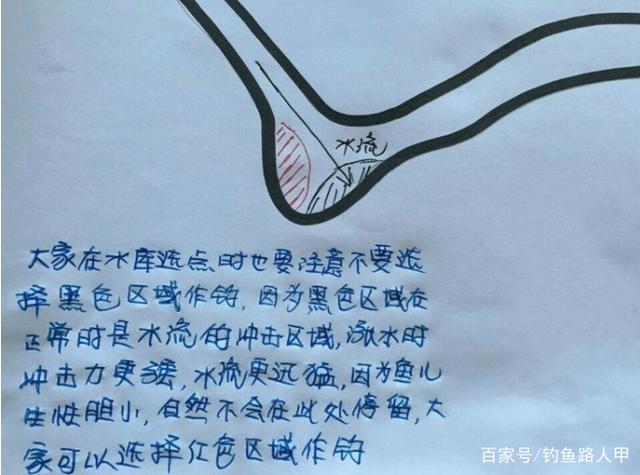 水流
大家在水库选点时也要注意不要选
择黑色区域作钓，因为黑色区域在
正常时是水流的冲击区域，涨水时
冲击力更强，水流更迅猛，因为鱼儿
生性胆小，自然不会在此处停留，大
家可以选择红色区域作钓
百家号/钓鱼路人甲